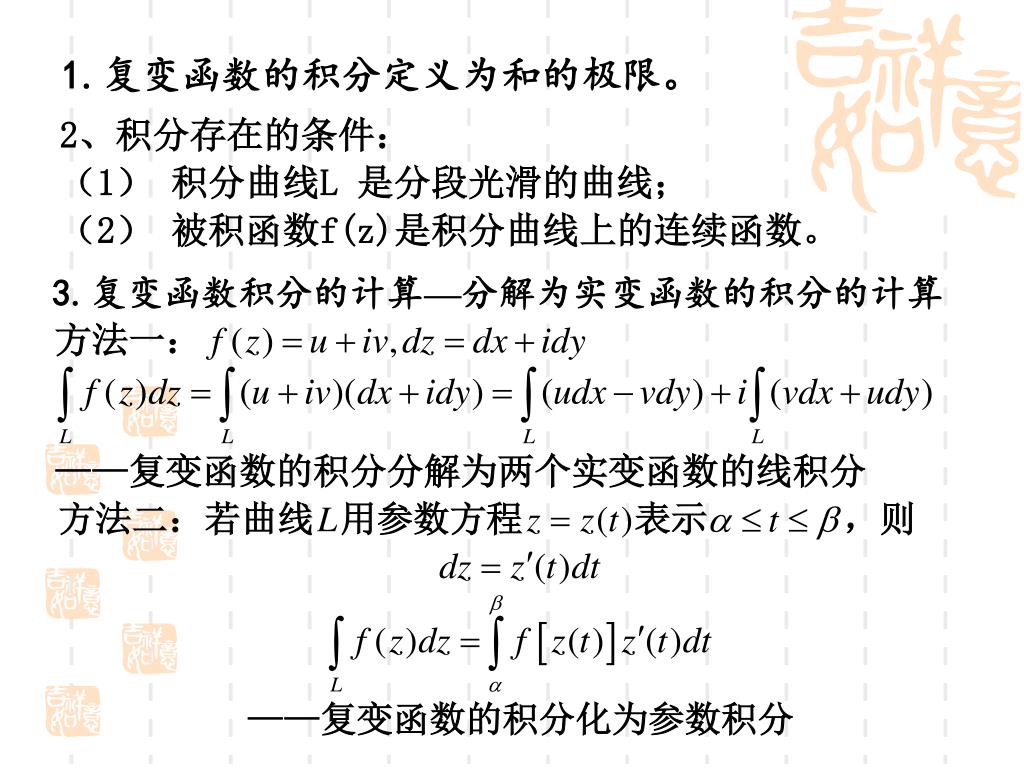 吉祥如意
1.复变函数的积分定义为和的极限。
2、积分存在的条件：
（1） 积分曲线L 是分段光滑的曲线；
（2） 被积函数f(z)是积分曲线上的连续函数。
3.复变函数积分的计算—分解为实变函数的积分的计算
方法一： f(z) = u + iv, dz = dx + idy
∫_L f(z)dz = ∫_L (u + iv)(dx + idy) = ∫_L (udx − vdy) + i∫_L (vdx + udy)
——复变函数的积分分解为两个实变函数的线积分
方法二：若曲线L用参数方程z = z(t)表示α ≤ t ≤ β，则
dz = z′(t)dt
∫_L f(z)dz = ∫_α^β f[z(t)]z′(t)dt
——复变函数的积分化为参数积分
吉祥如意
吉祥如意
吉祥如意
吉祥如意
吉祥如意
吉祥如意